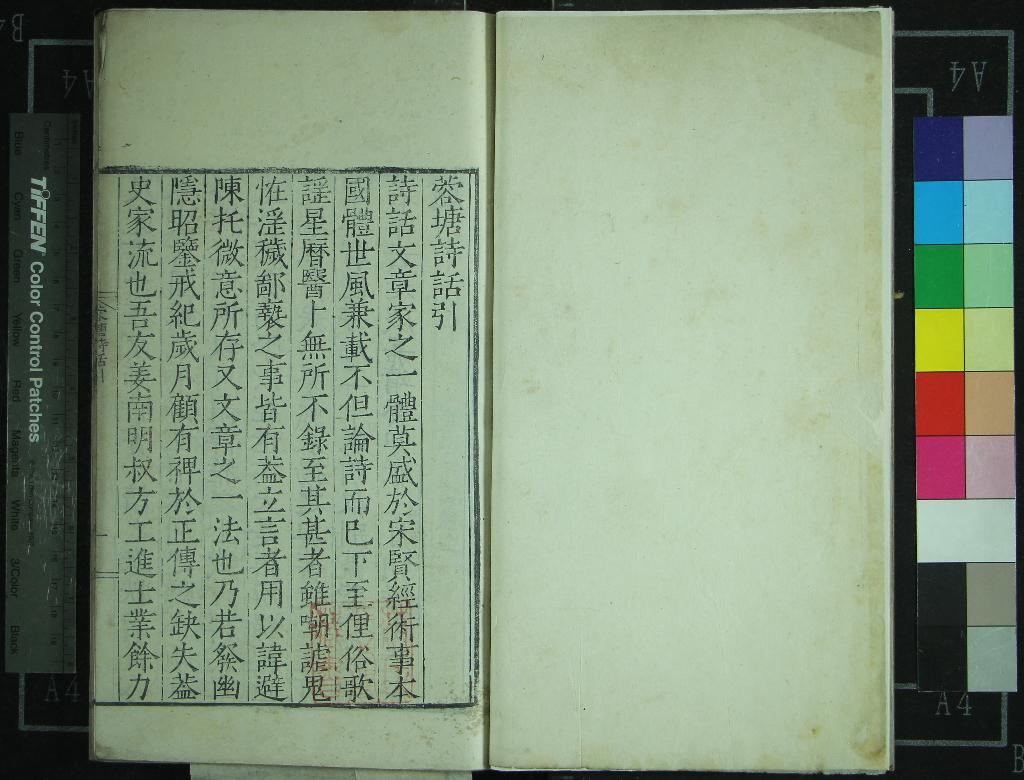 蓉塘詩話引
詩話文章家之一體莫盛於宋賢經術事本
國體世風兼載不但論詩而已下至俚俗歌
謡星曆醫卜無所不錄至其甚者雖嘲謔鬼
怪淫穢鄙褻之事皆有葢立言者用以諱避
陳托微意所存又文章之一法也乃若發幽
隱昭鑒戒紀歲月顧有禆於正傳之缺失葢
史家流也吾友姜南明叔方工進士業餘力
TIFFEN Color Control Patches
Blue
Cyan
Green
Yellow
Red
Magenta
White
3/Color
Black
A4
A4
A4
A4
B
B